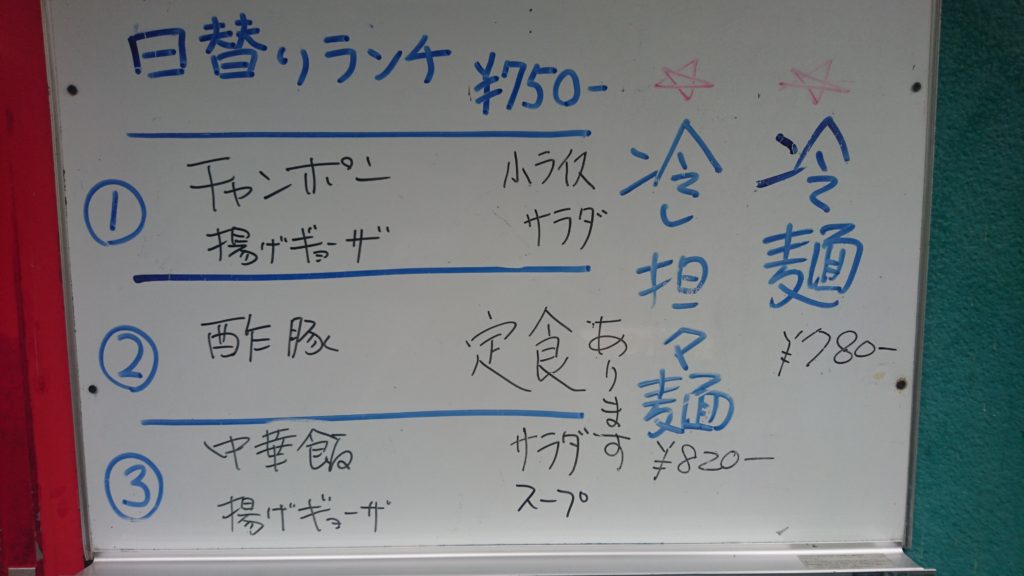 日替りランチ ¥750-
① チャンポン 小ライス
揚げギョーザ サラダ
② 酢豚 定食
③ 中華飯 サラダ
揚げギョーザ スープ
あります
☆冷麺
¥780-
☆冷し担々麺
¥820-